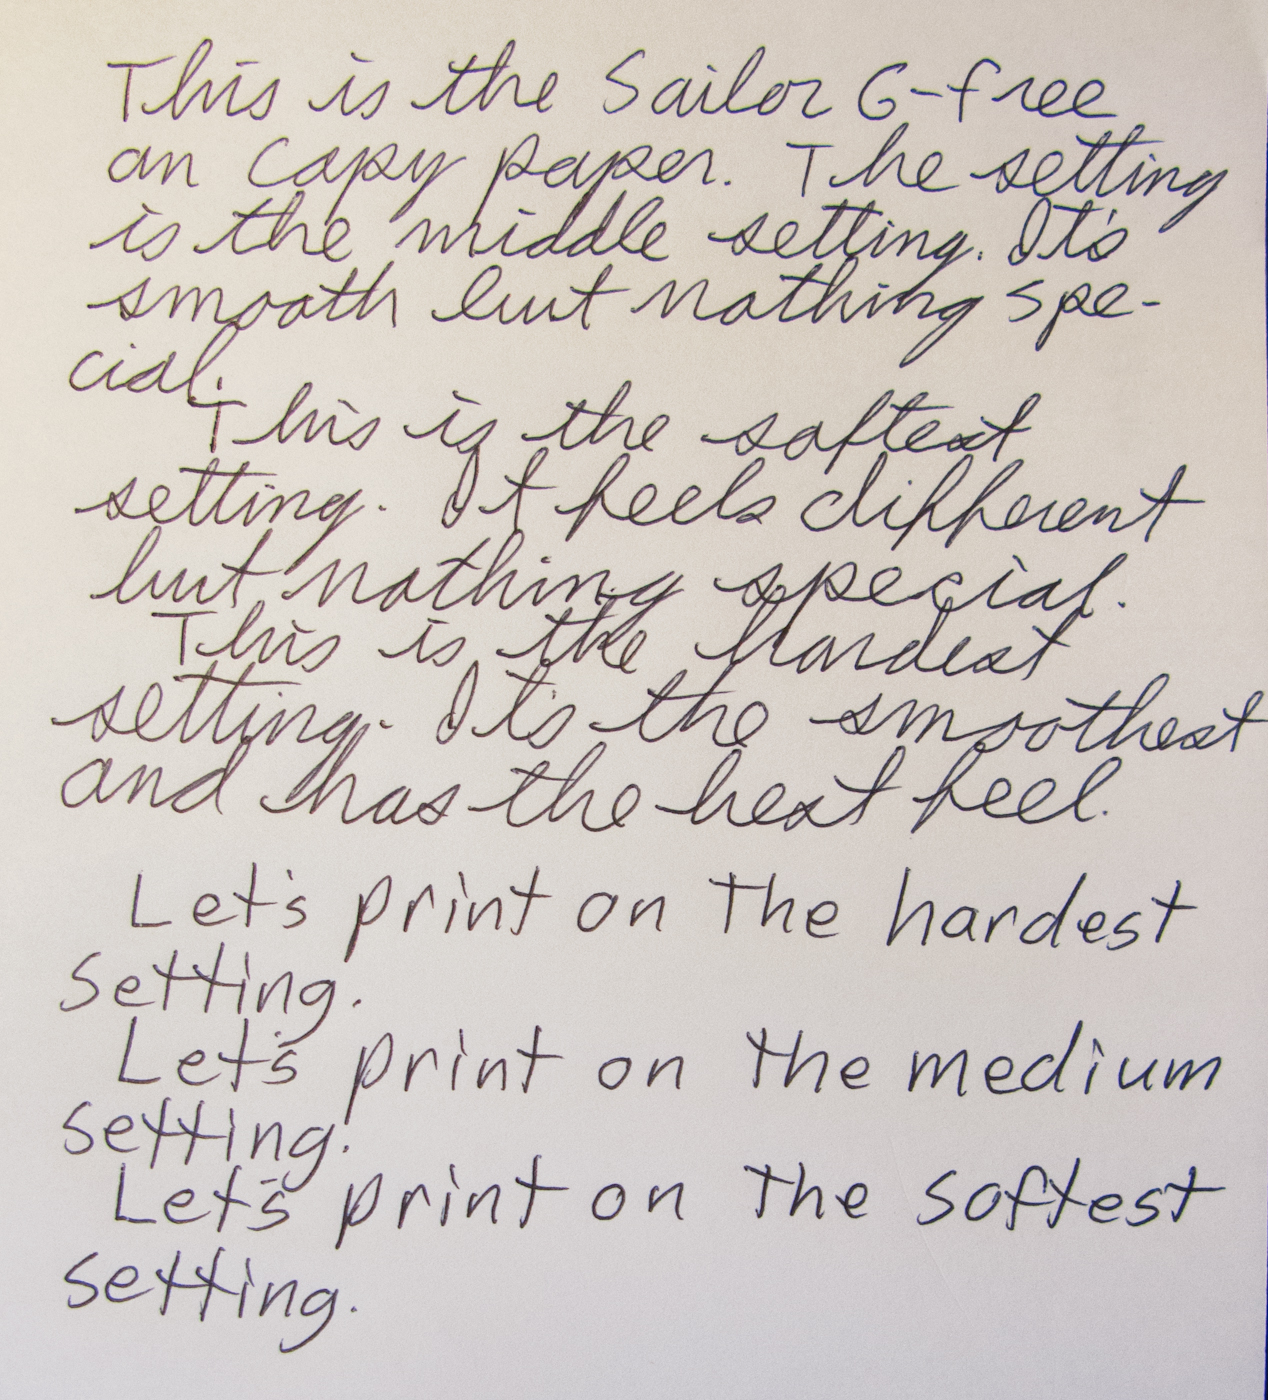 This is the Sailor G-free
on copy paper. The setting
is the middle setting. It's
smooth but nothing spe-
cial.
This is the softest
setting. It feels different
but nothing special.
This is the hardest
setting. It's the smoothest
and has the best feel.
Let's print on the hardest
setting.
Let's print on the medium
setting.
Let's print on the softest
setting.